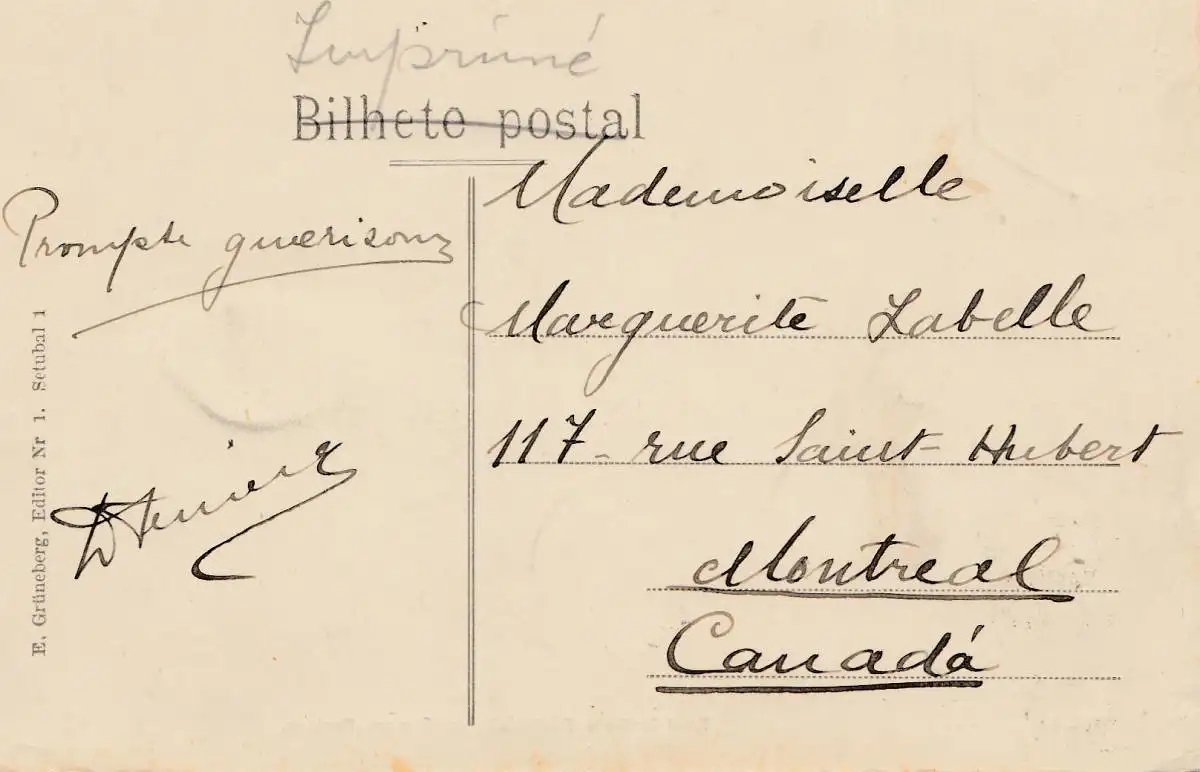 Imprimé
Bilhete postal
Prompte guerison
Mademoiselle
Marguerite Labelle
117 - rue Saint-Hubert
Montreal
Canadá
E. Grüneberg, Editor Nr 1. Setubal 1